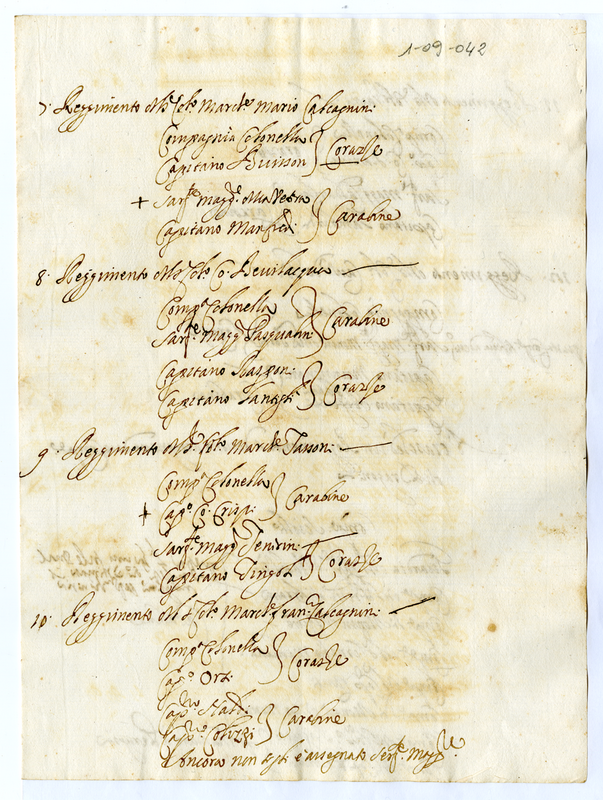 1-09-042
7. Reggimento del S. Col. March.e Mario Calcagnini
Compagnia Colonella
Capitano Buisson } Corazze
+ Sarg.te Magg.
Capitano Manfredi } Carabine
8. Reggimento del S. Col. Co. Bevilacqua
Comp.a Colonella
Sarg.te Magg. Pasqualini } Carabine
Capitano Rasponi
Capitano } Corazze
9. Reggimento del S. Col. March.e Tassoni
Comp.a Colonella
+ Cap.o Co. Crispi } Carabine
Sarg.te Magg.
Capitano } Corazze
10. Reggimento del S. Col. March.e Fran.o Calcagnini
Comp.a Colonella
Cap.o Orti } Corazze
Cap.no
Cap.no } Carabine
Ancora non gli è assegnato Serg.te Magg.re